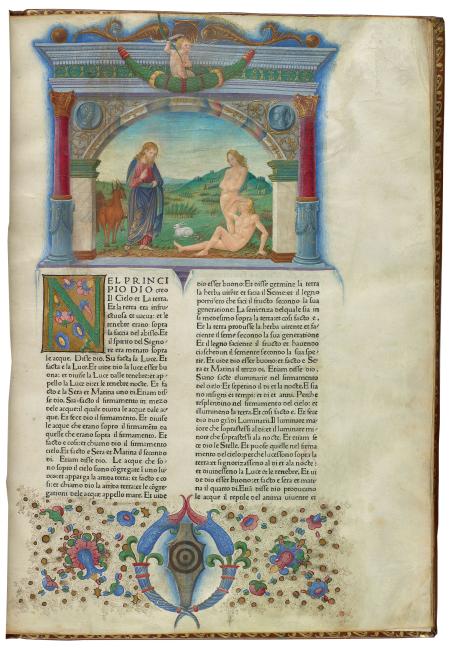 NEL PRINCI
PIO DIO creo
Il Cielo et La terra.
Et la terra era infru
ctuosa et uacua: et le
tenebre erano sopra
la facia del abisso. Et
il spirito del Signo
re era menato sopra
le acque. Disse dio. Sia facta la Luce. Et
facta e la Luce. Et uide dio la luce esser bu
ona: et diuise la Luce dalle tenebre: et ap
pello la Luce di et le tenebre nocte. Et fa
cto e la Sera et Matina uno di. Etiam dis
se dio. Sia facto il firmamento in mezo
dele acque: il quale diuida le acque dale ac
que. Et fece dio il firmamento. Et diuise
le acque che erano sopra il firmamẽto da
quelle che erano sopra il firmamento. Et
facto e cosi: et chiamo dio il firmamento
cielo. Et facto e Sera et Matina il secondo
di. Etiam disse dio. Le acque che so
no sopto il cielo siano cõgregate i uno luo
co: et apparga la arrida terra: et facto e co
si: et chiamo dio la arrida terra: et le cõgre
gationi dele acque appello mare. Et uide
dio esser buono: Et disse germine la terra
la herba uirente et facia il Seme: et il legno
pomifero che faci il fructo secondo la sua
generatione: La semenza del quale sia in
si medesimo sopra la terra: et cosi facto e.
Et la terra produsse la herba uirente et fa
ciente il semente secondo la sua generatione
Et il legno faciente il fructo et hauendo
ciaschedun il semente secondo la sua spe
tie. Et uide dio esser buono: et facto e Se
ra et Matina il terzo di. Etiam disse dio.
Siano facte illuminarii nel firmamento
del cielo: et spartino il di et la nocte. Et sia
no in segni et tempi: et di et anni. Perche
resplendino nel firmamento del cielo: et
illuminino la terra. Et cosi facto e. Et fece
dio duo grãdi Luminari. Il luminare ma
iore che soprastessi al di et il luminare mi
nore che soprastessi ala nocte. Et etiam fe
ce dio le Stelle. Et puose quelle nel firma
mento del cielo: perche lucessono sopra la
terra: et signorizassino al di et ala nocte:
et diuidessino la Luce et le tenebre. Et ui
de dio esser buono: et facto e sera et mati
na il quarto di. Etiã disse dio producano
le acque il reptile del anima uiuente et